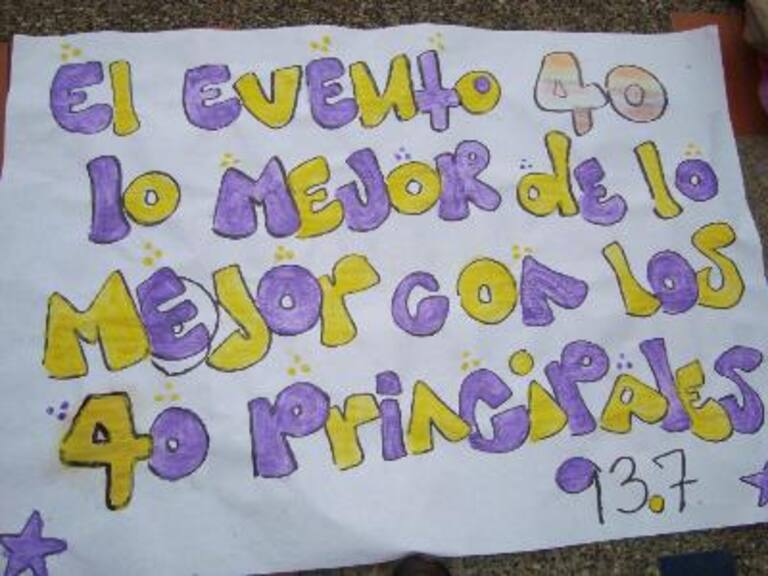 El EVENTO 40
lo MEJOR de lo
MEJOR CON LOS
40 PRINCIPALES
93.7